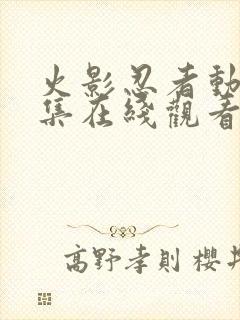 火影忍者動
集在綫觀看
高野孝則 櫻井